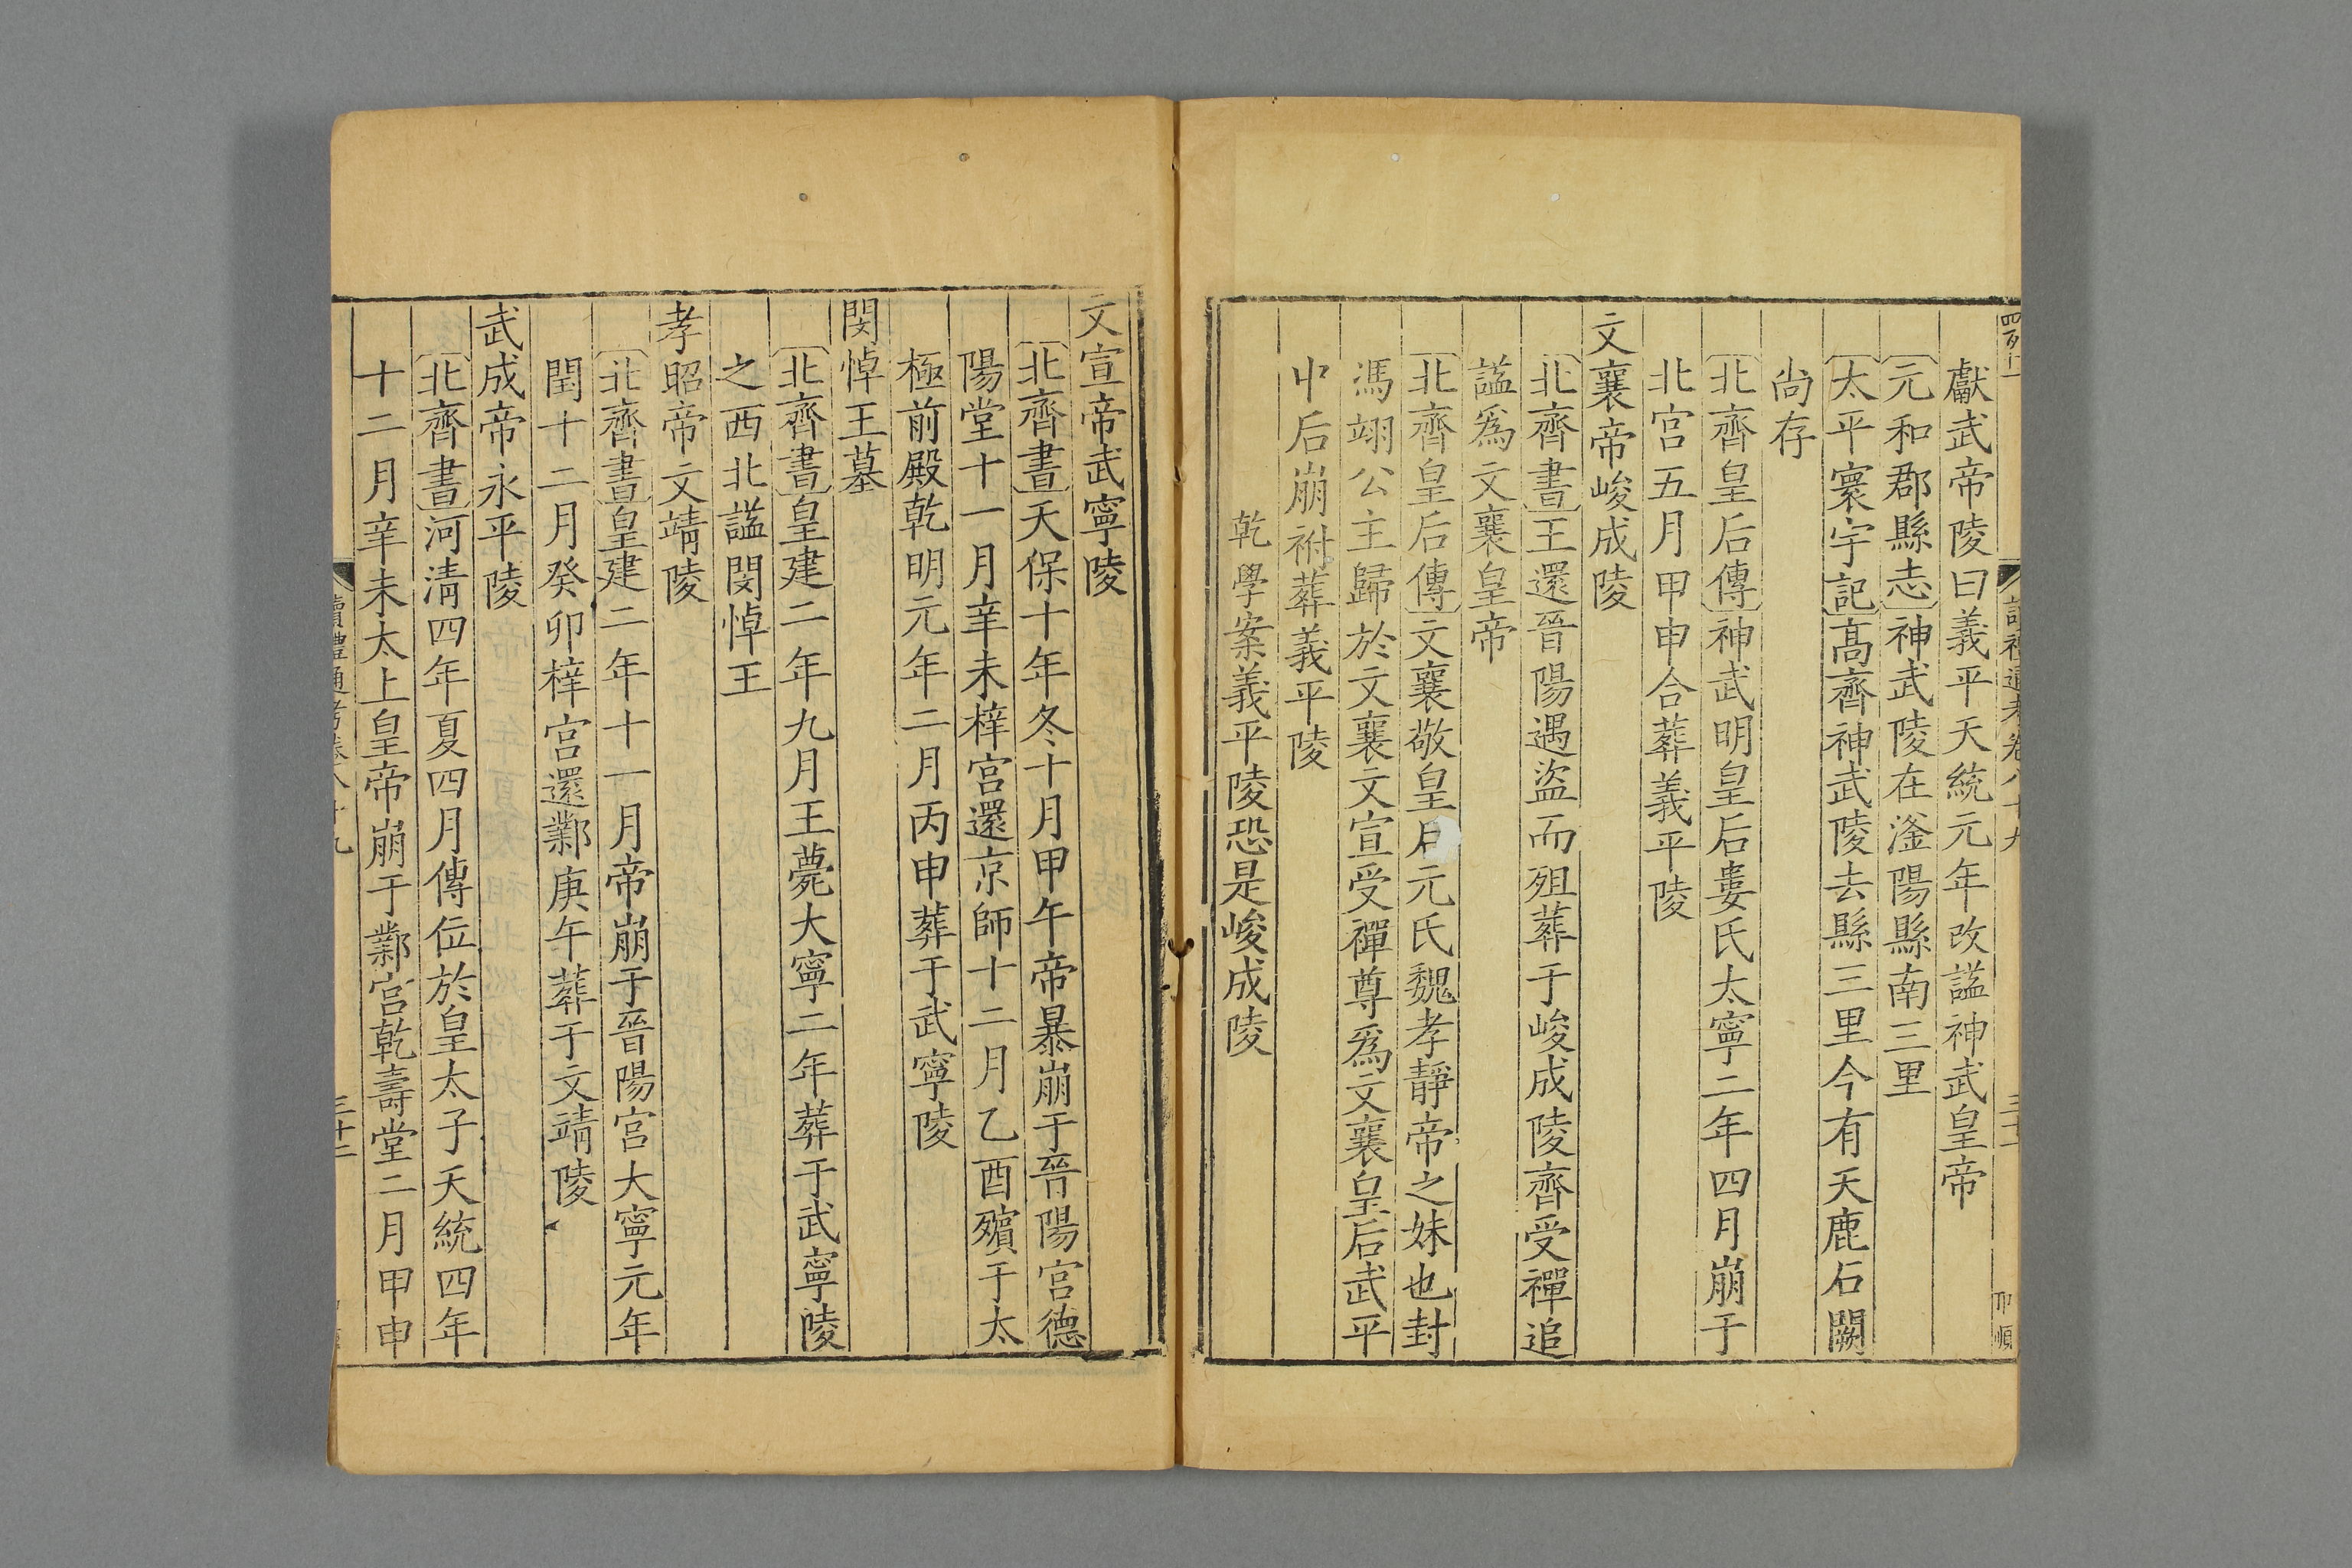 獻武帝陵曰義平天統元年改謚神武皇帝
〔元和郡縣志〕神武陵在滏陽縣南三里
〔太平寰宇記〕高齊神武陵去縣三里今有天鹿石闕
尚存
〔北齊皇后傳〕神武明皇后婁氏太寧二年四月崩于
北宮五月甲申合葬義平陵
文襄帝峻成陵
〔北齊書〕王還晉陽遇盜而殂葬于峻成陵齊受禪追
謚爲文襄皇帝
〔北齊皇后傳〕文襄敬皇后元氏魏孝靜帝之妹也封
馮翊公主歸於文襄文宣受禪尊爲文襄皇后武平
中后崩祔葬義平陵
乾學案義平陵恐是峻成陵
文宣帝武寧陵
〔北齊書〕天保十年冬十月甲午帝暴崩于晉陽宮德
陽堂十一月辛未梓宮還京師十二月乙酉殯于太
極前殿乾明元年二月丙申葬于武寧陵
閔悼王墓
〔北齊書〕皇建二年九月王薨大寧二年葬于武寧陵
之西北謚閔悼王
孝昭帝文靖陵
〔北齊書〕皇建二年十一月帝崩于晉陽宮大寧元年
閏十二月癸卯梓宮還鄴庚午葬于文靖陵
武成帝永平陵
〔北齊書〕河清四年夏四月傳位於皇太子天統四年
十二月辛未太上皇帝崩于鄴宮乾壽堂二月甲申
讀禮通考卷八十九
三十二